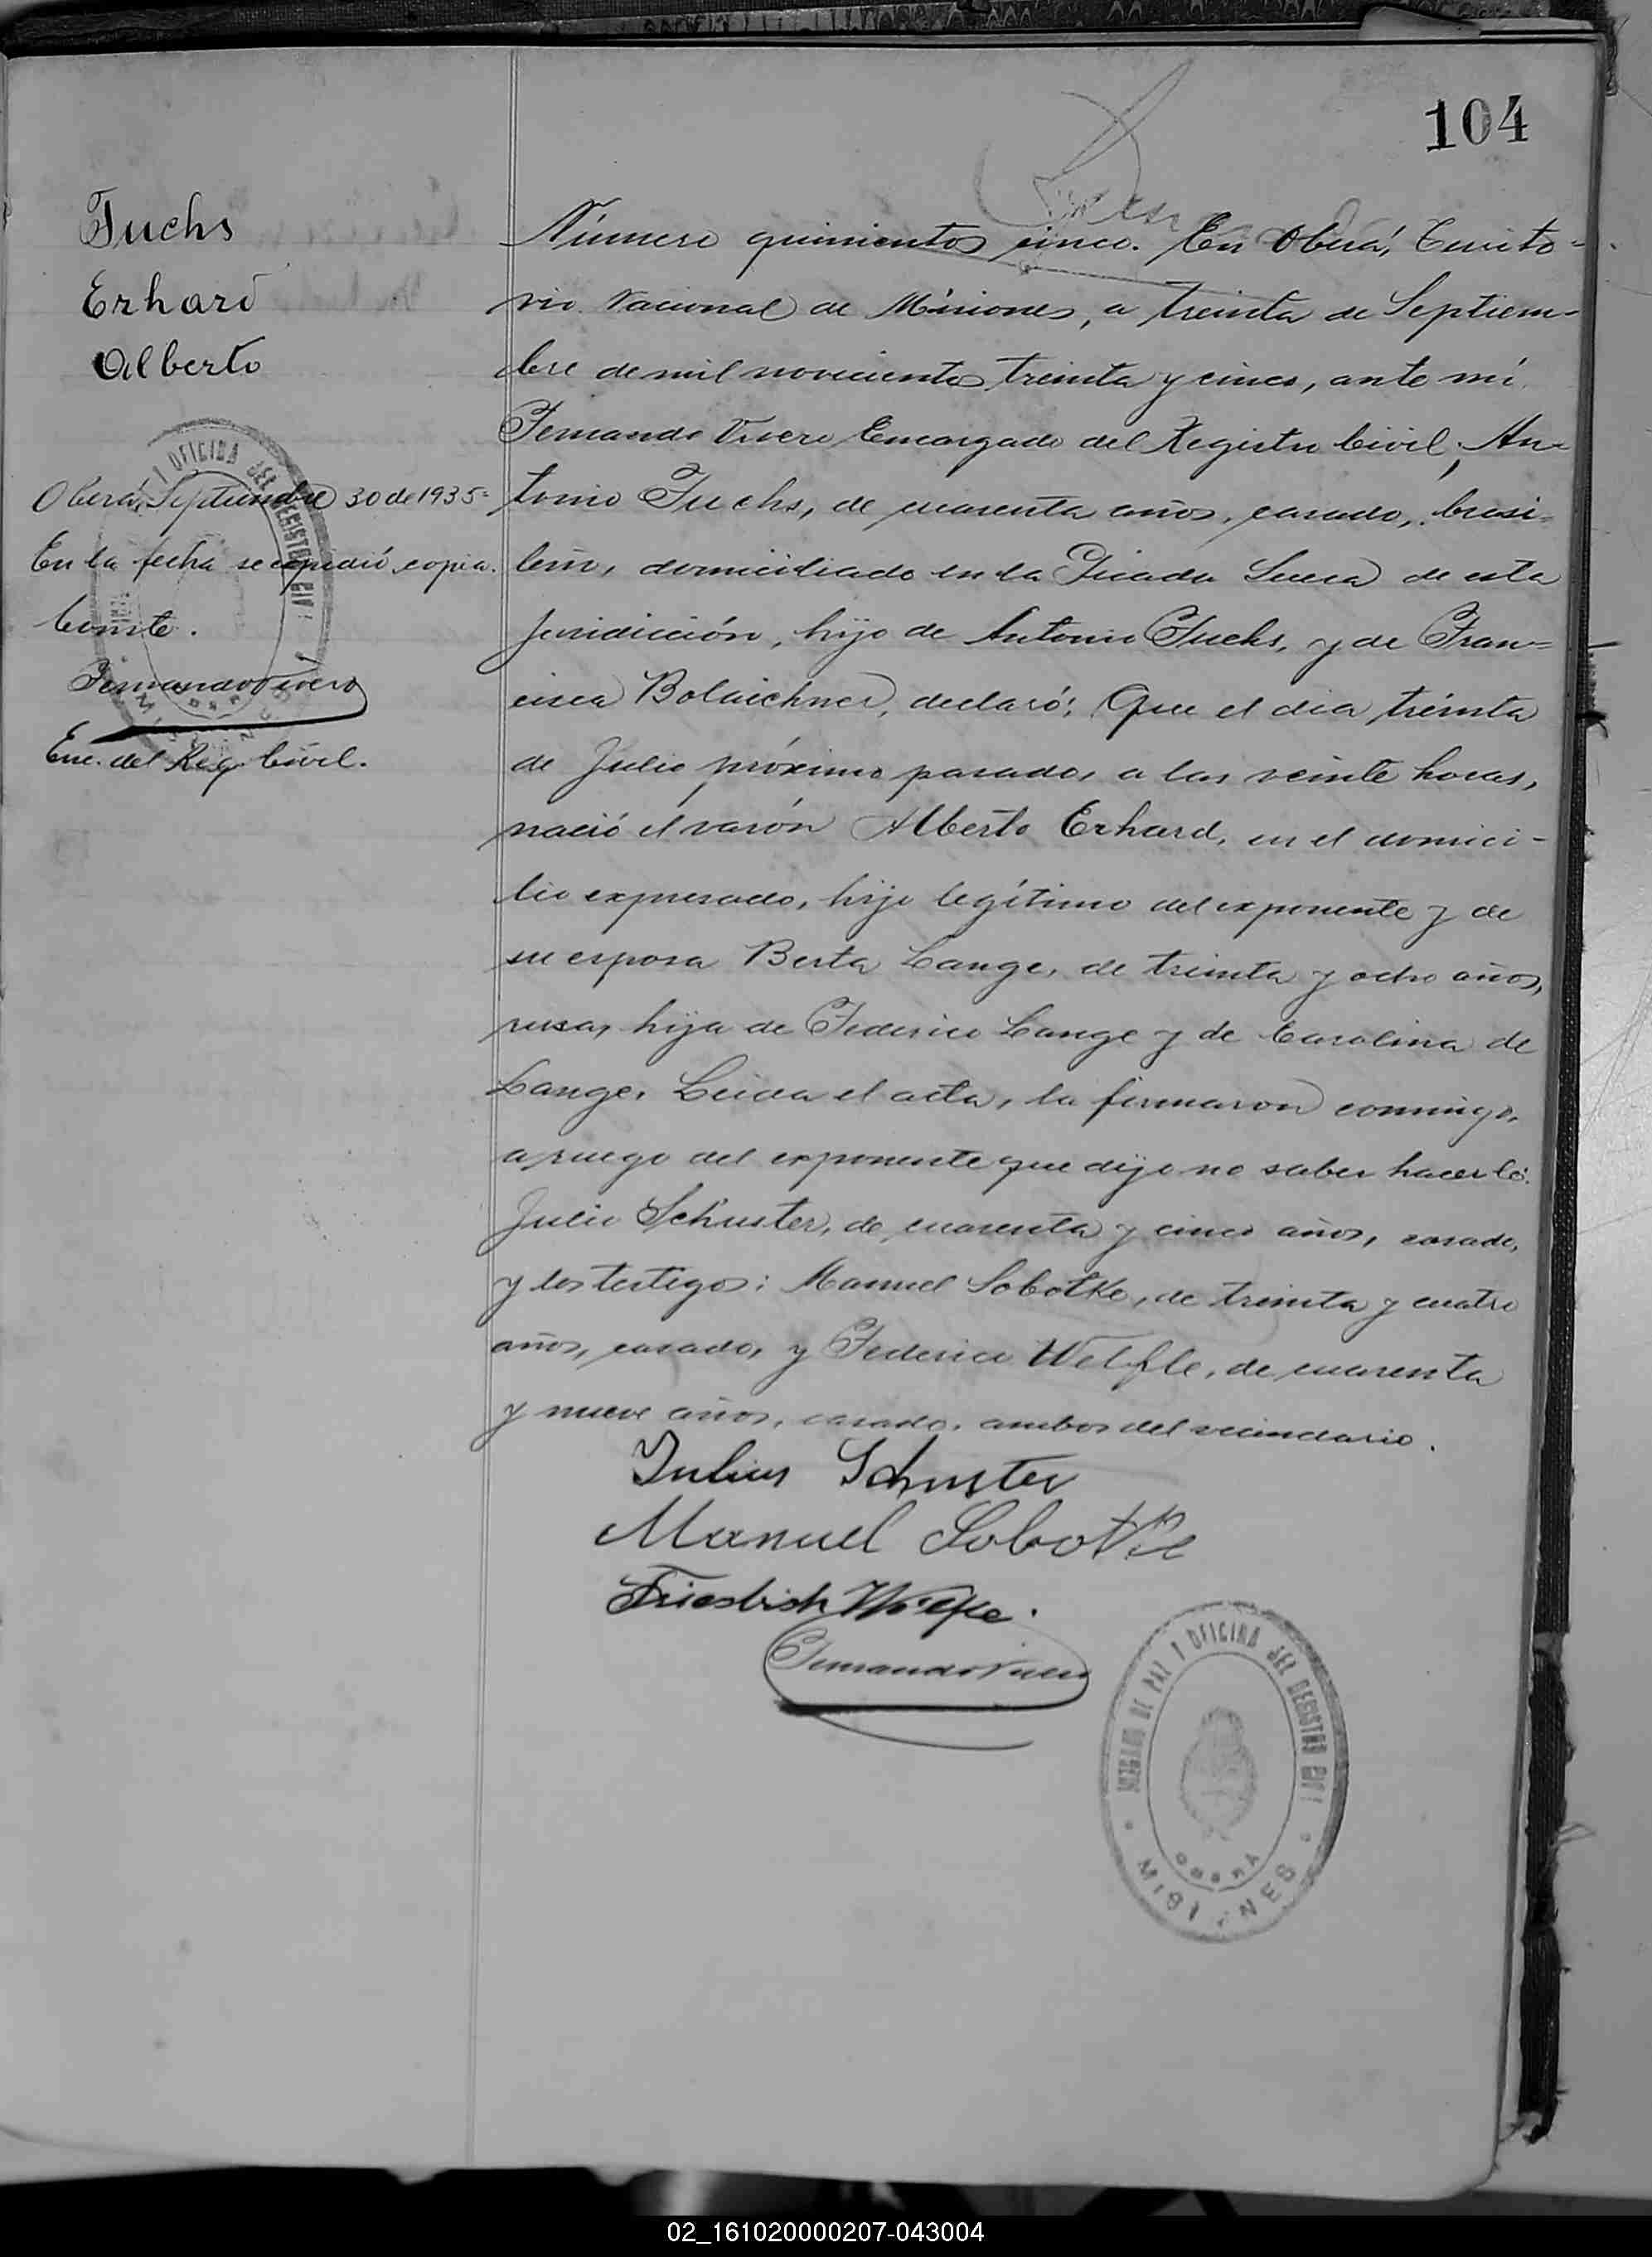 104
Fuchs
Erhard
Alberto
Oberá, Septiembre 30 de 1935=
En la fecha se expidió copia.
Conste.
Fernando Vivero
Enc. del Reg. Civil.
Número quinientos cinco. En Oberá, Territo-
rio Nacional de Misiones, a treinta de Septiem-
bre de mil novecientos treinta y cinco, ante mí
Fernando Vivero Encargado del Registro Civil, An-
tonio Fuchs, de cuarenta años, casado, brasi-
leño, domiciliado en la Picada Sueca de esta
jurisdicción, hijo de Antonio Fuchs, y de Fran=
cisca Bolaichner, declaró: Que el día treinta
de Julio próximo pasado, a las veinte horas,
nació el varón Alberto Erhard, en el domici-
lio expresado, hijo legítimo del exponente y de
su esposa Berta Lange, de treinta y ocho años,
rusa, hija de Federico Lange y de Carolina de
Lange. Leida el acta, la firmaron conmigo,
a ruego del exponente que dijo no saber hacerlo:
Julio Schuster, de cuarenta y cinco años, casado,
y los testigos: Manuel Sobotke, de treinta y cuatro
años, casado, y Federico Welfle, de cuarenta
y nueve años, casado, ambos del vecindario.
Julius Schuster
Manuel Sobotke
Fernando Vivero
JUZGADO DE PAZ Y OFICINA DEL REGISTRO CIVIL
OBERÁ
MISIONES
02_161020000207-043004